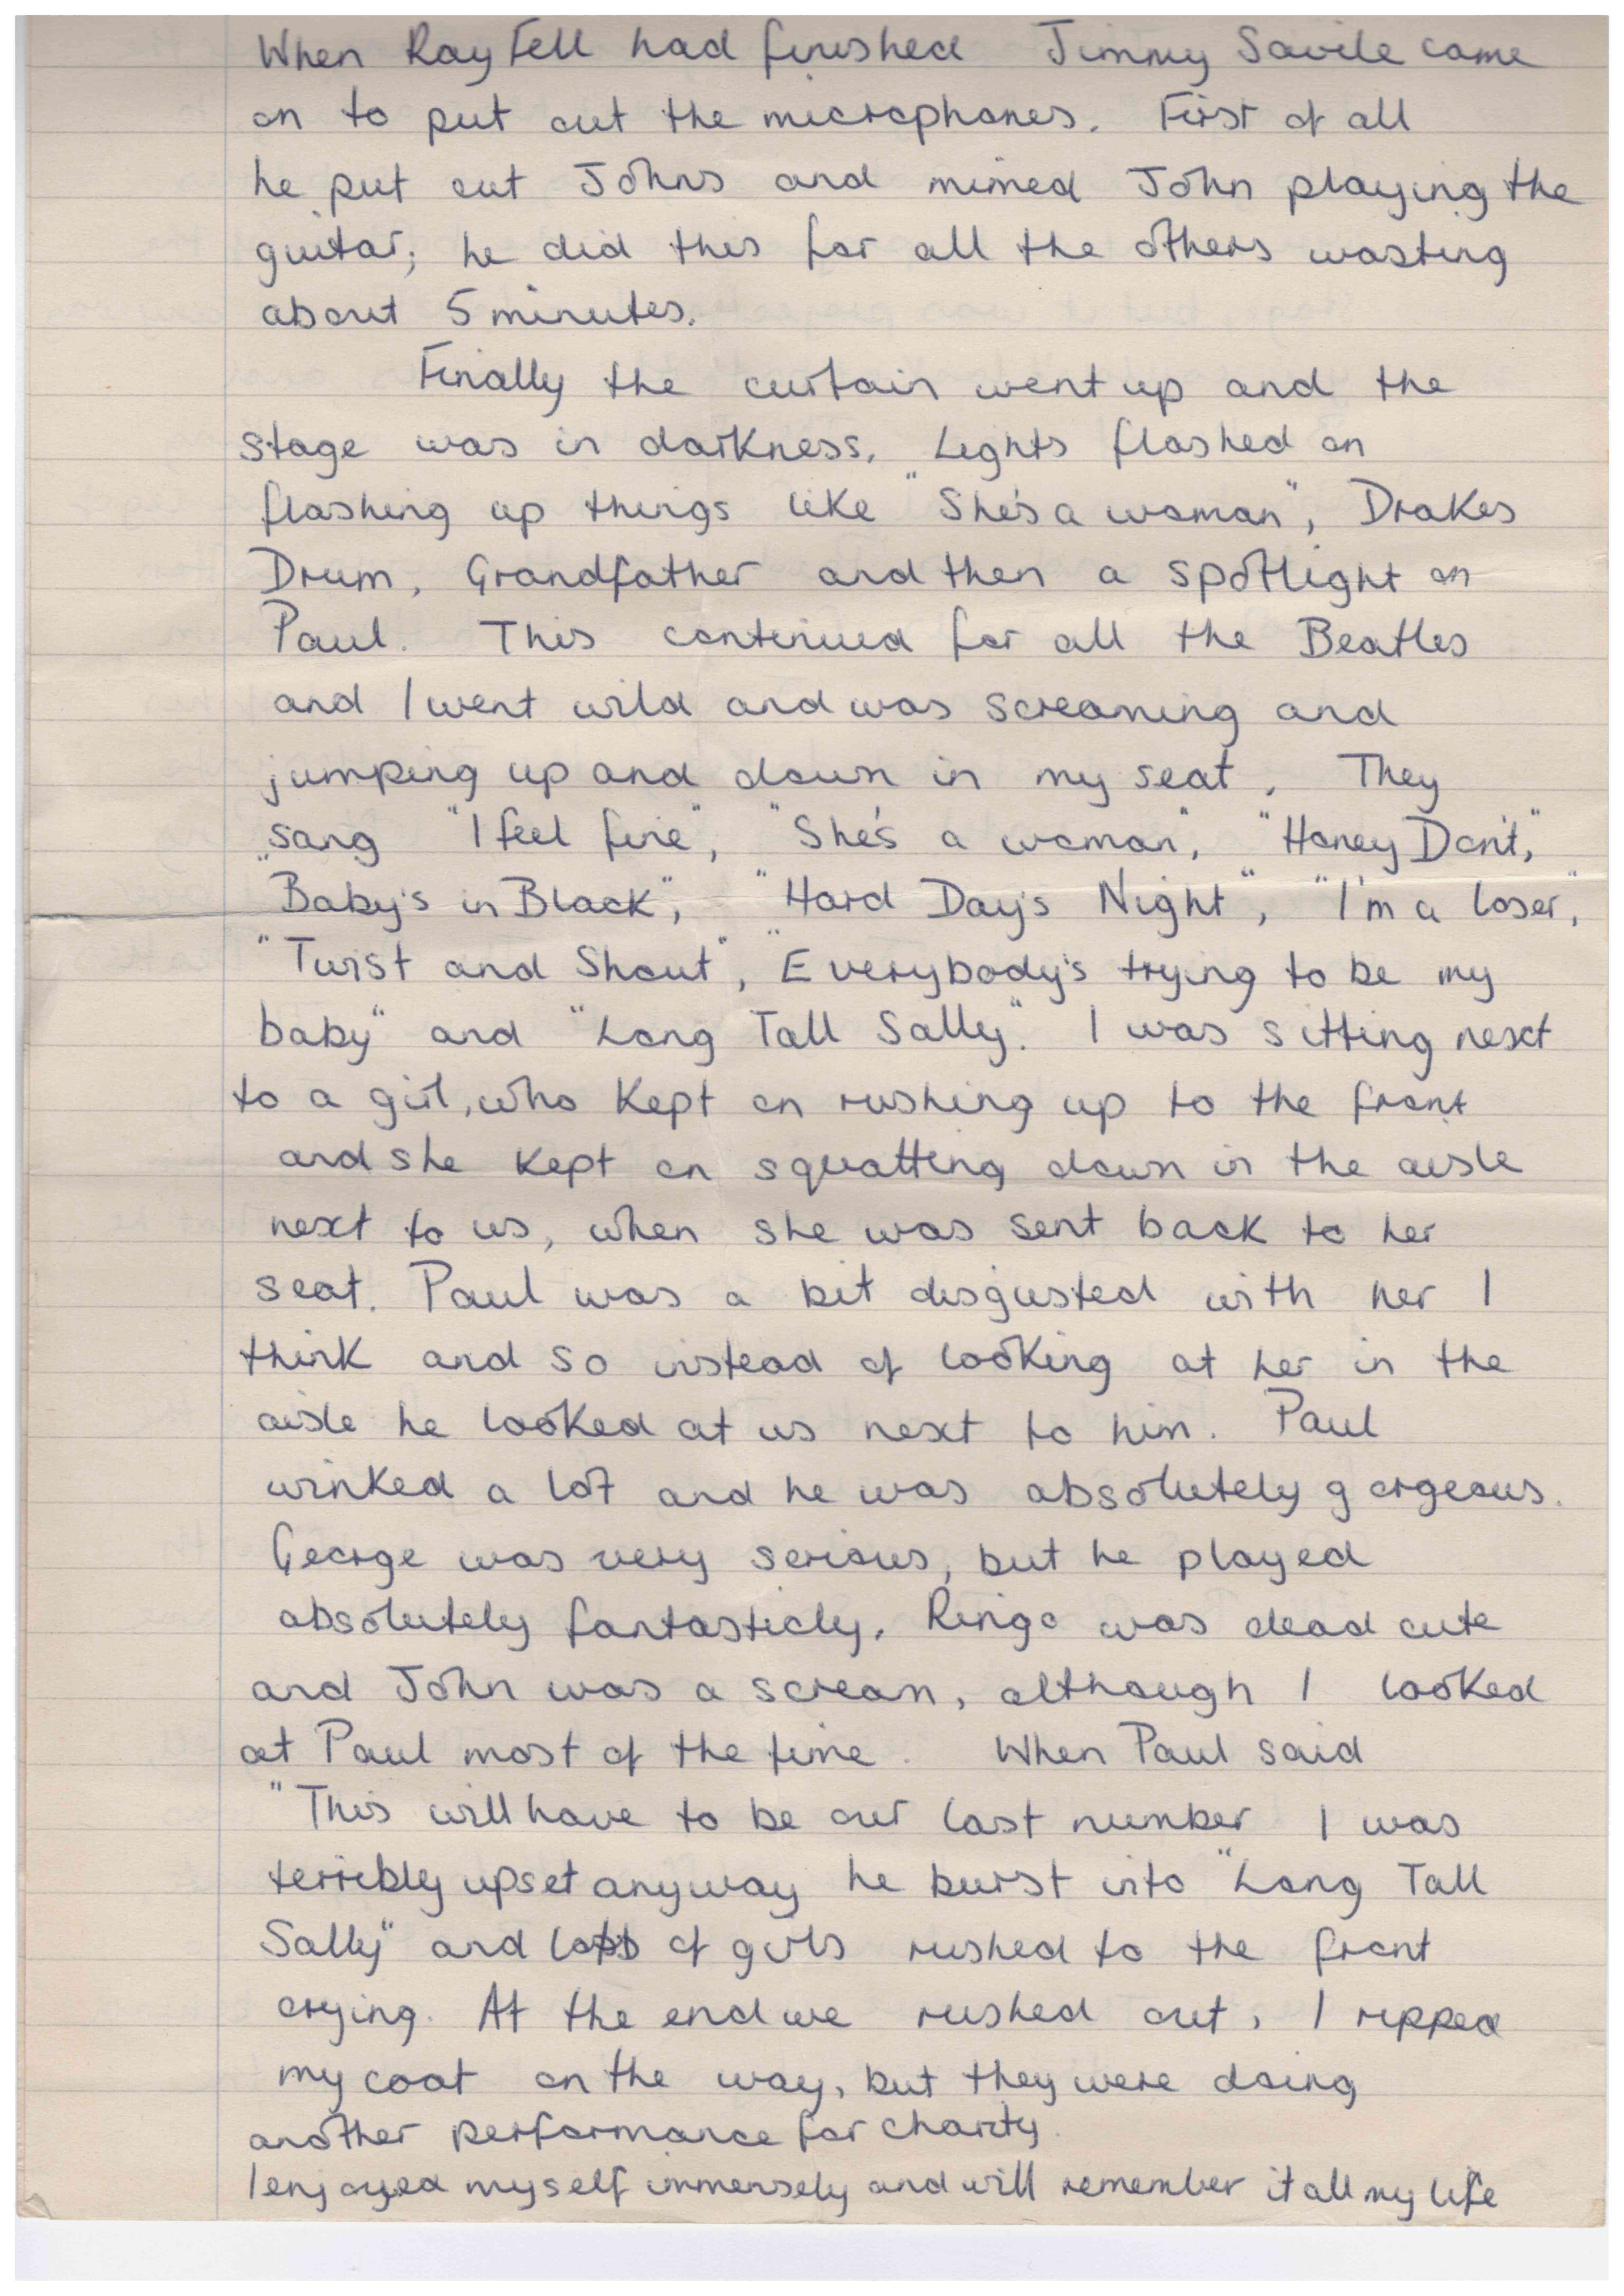 When Ray Fell had finished Jimmy Savile came
on to put out the microphones. First of all
he put out Johns and mimed John playing the
guitar; he did this for all the others wasting
about 5 minutes.
Finally the curtain went up and the
stage was in darkness. Lights flashed on
flashing up things like "She's a woman", Drakes
Drum, Grandfather and then a spotlight on
Paul. This continued for all the Beatles
and I went wild and was screaming and
jumping up and down in my seat. They
sang "I feel fine", "She's a woman", "Honey Don't,"
"Baby's in Black", "Hard Day's Night", "I'm a loser,"
"Twist and Shout", "Everybody's trying to be my
baby" and "Long Tall Sally". I was sitting next
to a girl, who kept on rushing up to the front
and she kept on squatting down in the aisle
next to us, when she was sent back to her
seat. Paul was a bit disgusted with her I
think and so instead of looking at her in the
aisle he looked at us next to him. Paul
winked a lot and he was absolutely gorgeous.
George was very serious, but he played
absolutely fantasticly. Ringo was dead cute
and John was a scream, although I looked
at Paul most of the time. When Paul said
"This will have to be our last number I was
terribly upset anyway he burst into "Long Tall
Sally" and lots of girls rushed to the front
crying. At the end we rushed out, I ripped
my coat on the way, but they were doing
another performance for charity.
I enjoyed myself immensely and will remember it all my life